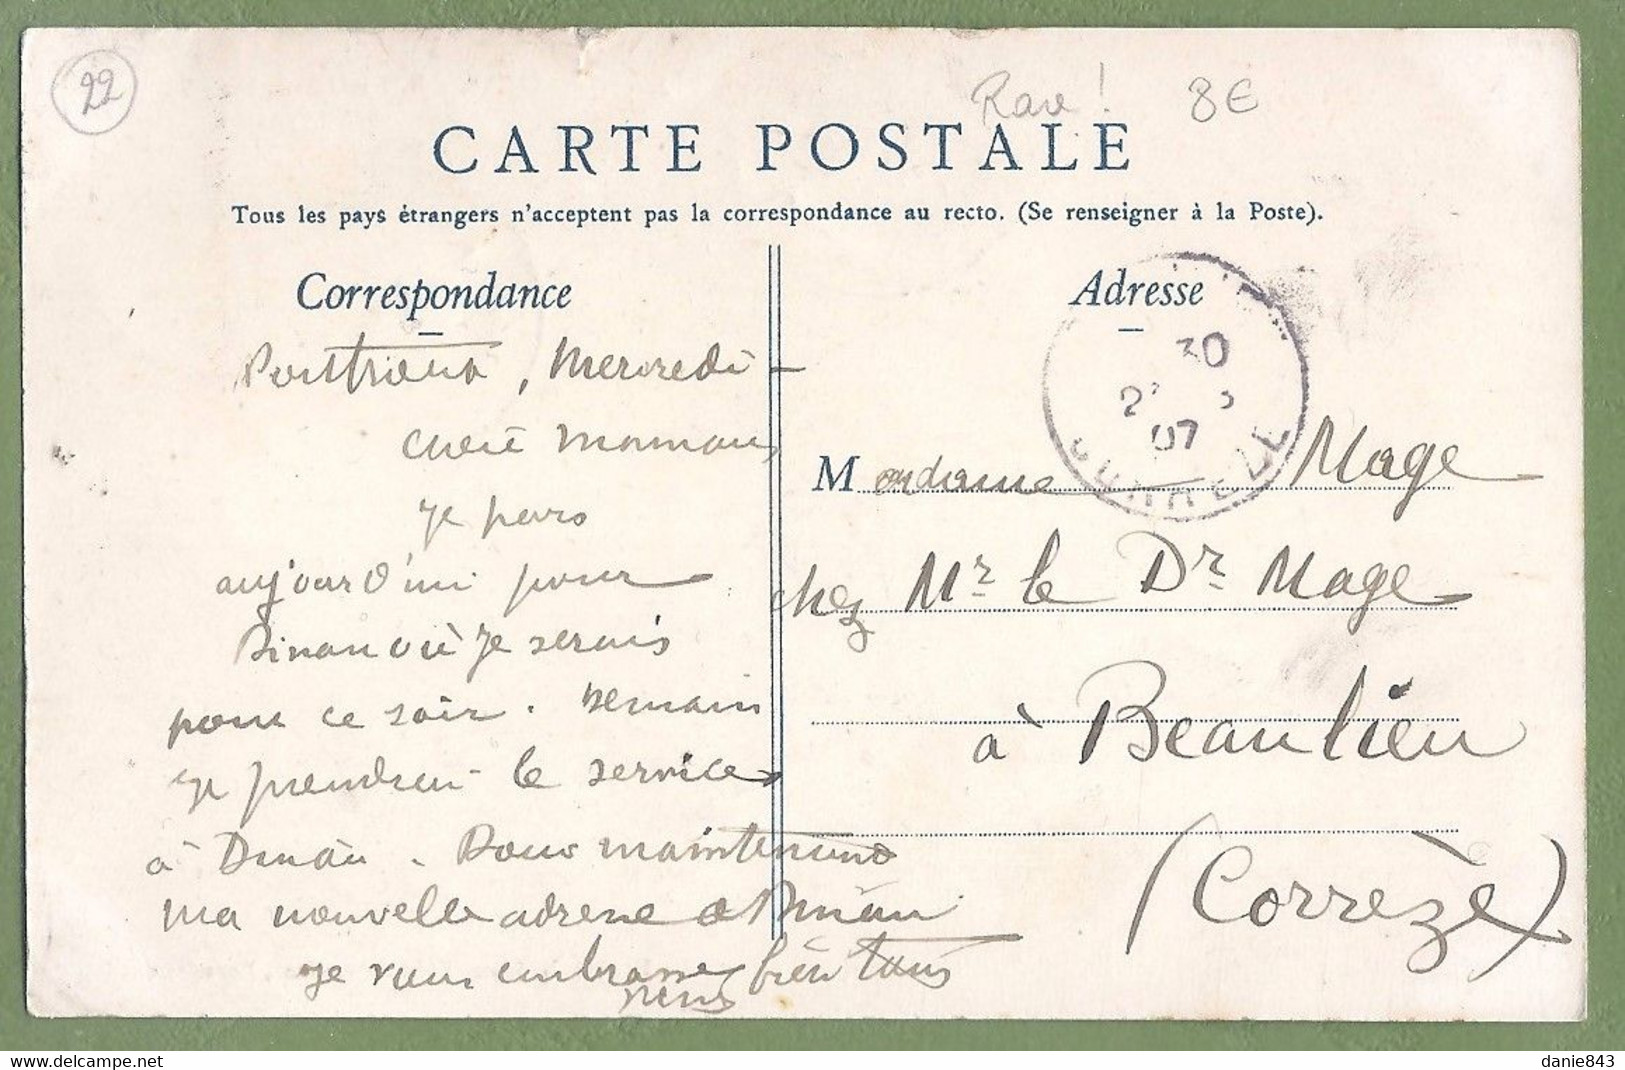 22
Rare ! 8€
CARTE POSTALE
Tous les pays étrangers n'acceptent pas la correspondance au recto. (Se renseigner à la Poste).
Correspondance
Pontrieux, Mercredi -
chère maman
Je pars
aujourd'hui pour
Dinan où je serais
pour ce soir. Demain
je prendrai le service
à Dinan. Donc maintenant
ma nouvelle adresse à Dinan
Je vous embrasse bien tous
Adresse
30
07
CORREZE
Madame Mage
chez Mr le Dr Mage
à Beaulieu
(Corrèze)
danie843